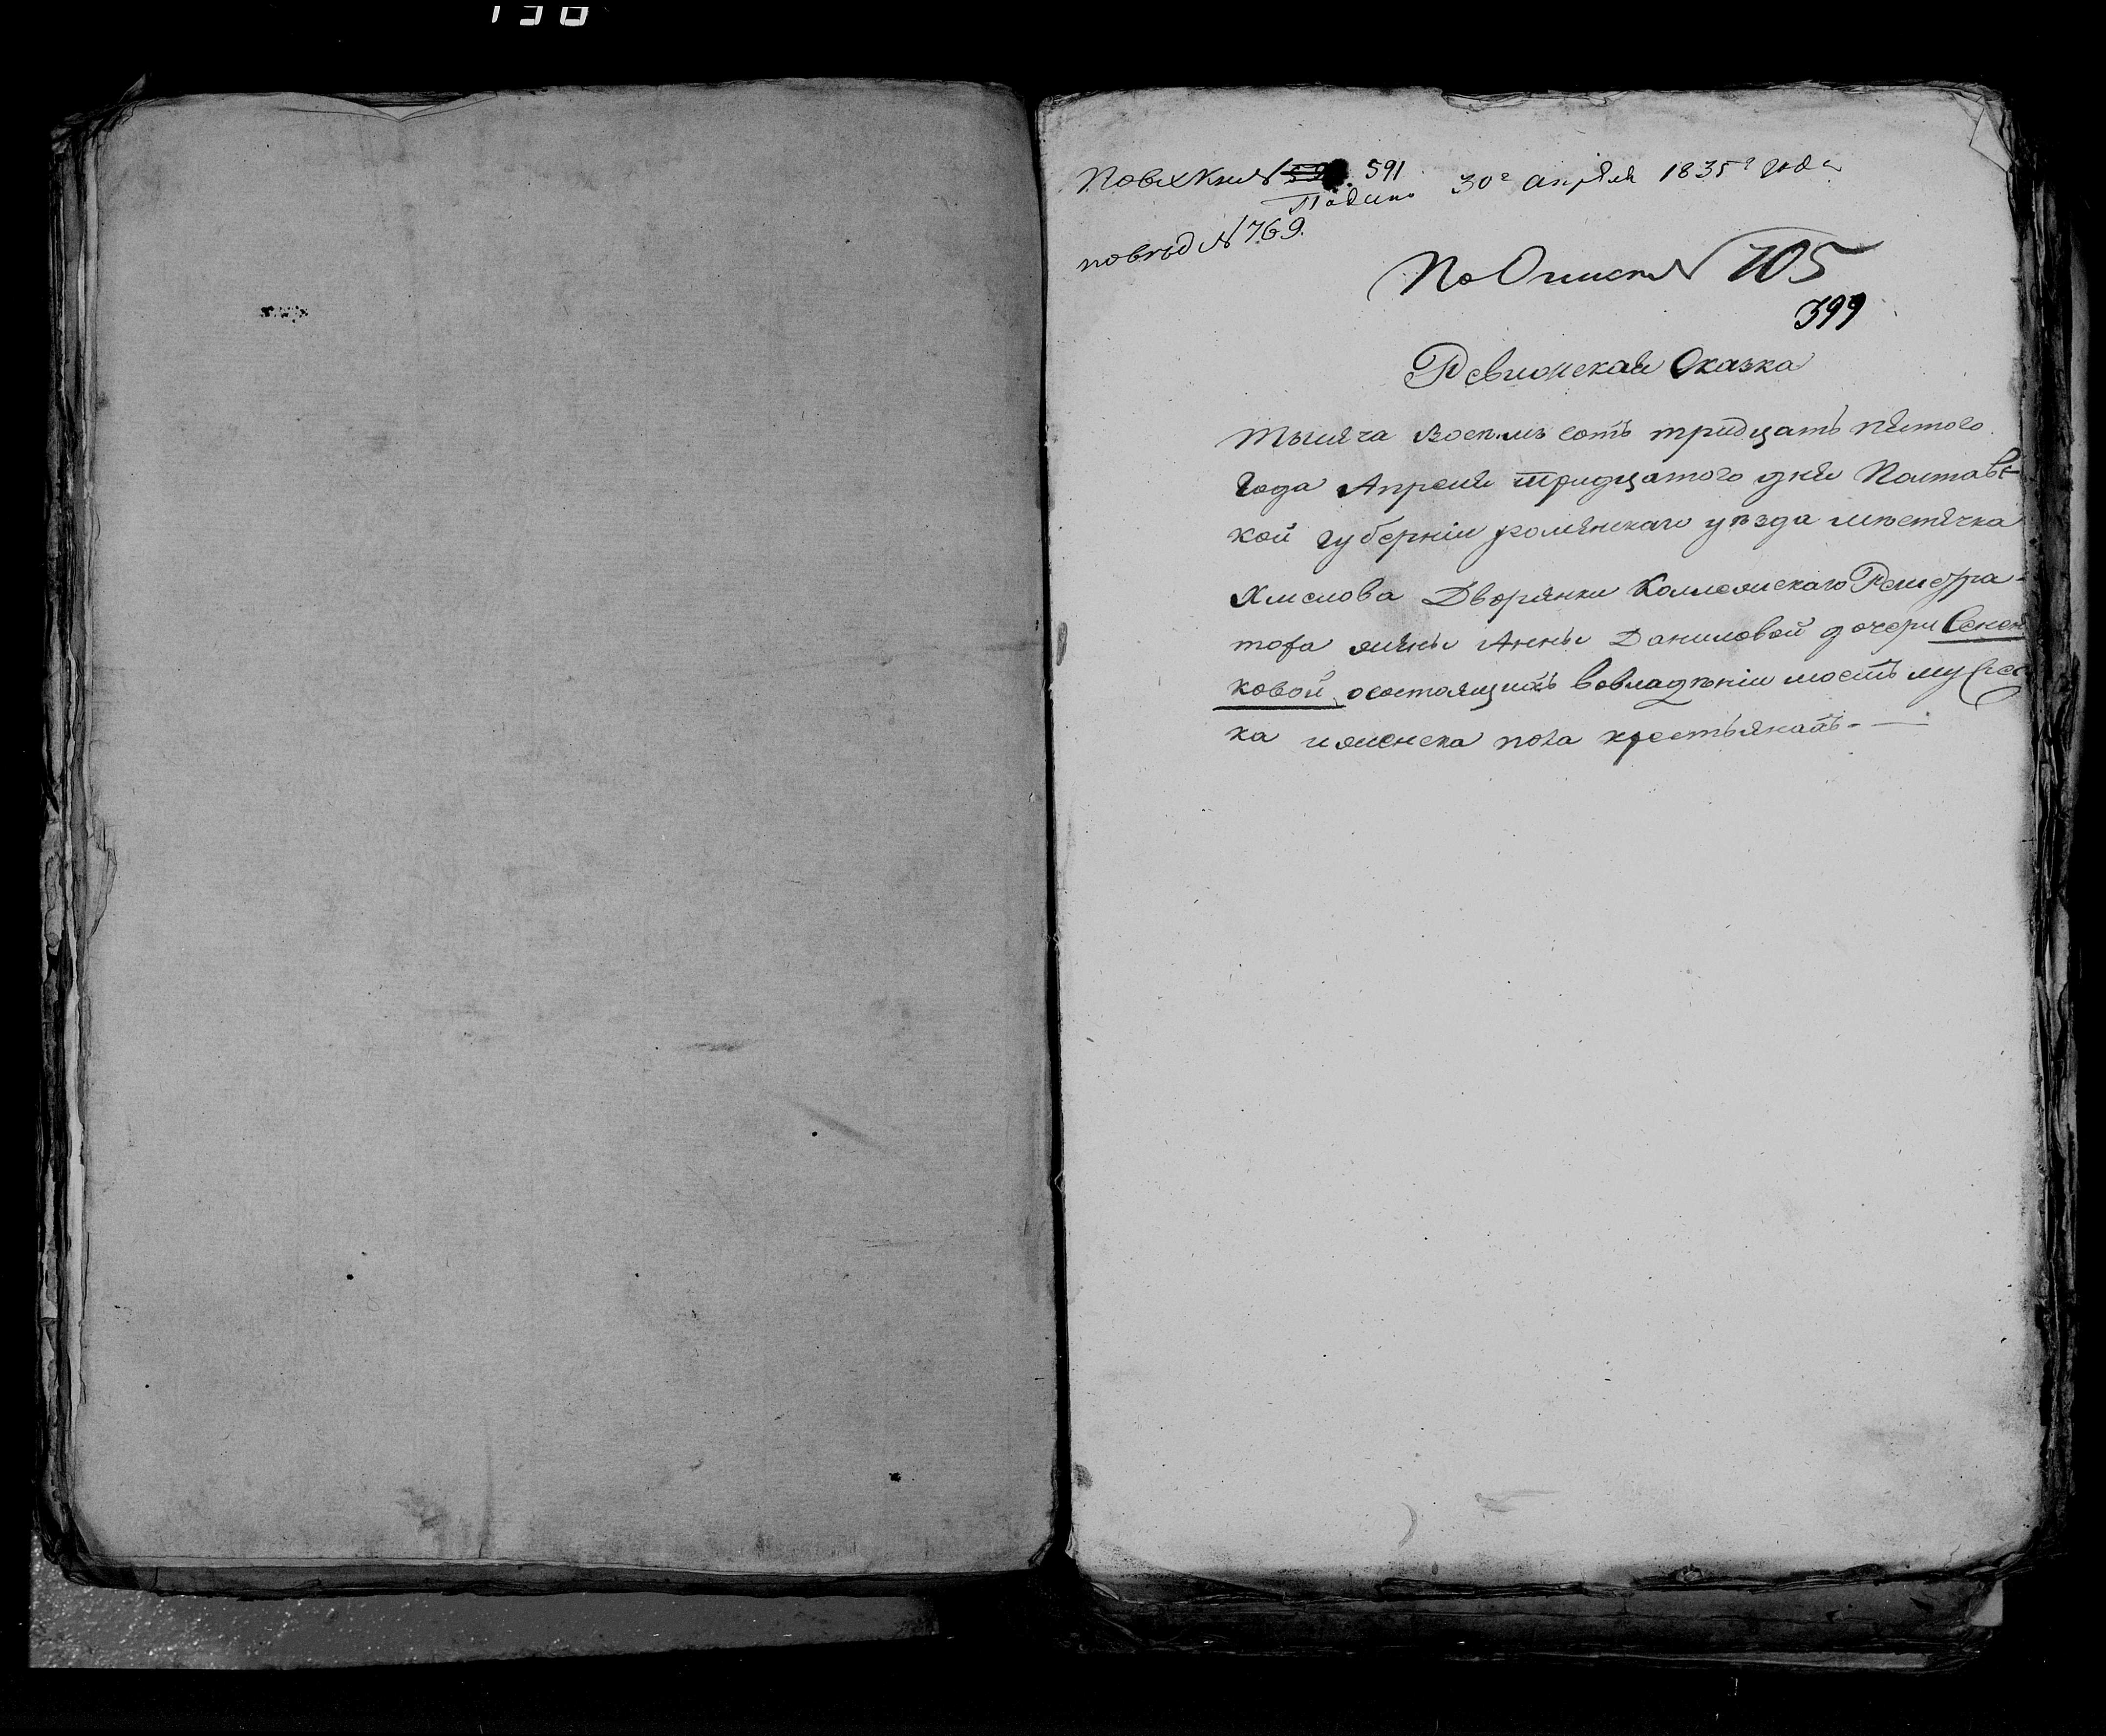 По вх Кн № 591
Подано 30го апреля 1835г года
по вѣд № 769.
По Описи № 705
399
Ревизская Сказка
Тысяча восемь сотъ тридцать пятого
года Апреля тридцатого дня Полтавс-
кой губерніи роменскаго уѣзда мѣстечка
Хмелова Дворянки Коллежскаго Регистра-
тора жены Анны Даниловой дочери Сенен
ковой о состоящихъ во владѣніи моемъ мужес
ка и женска пола крестьянахъ.